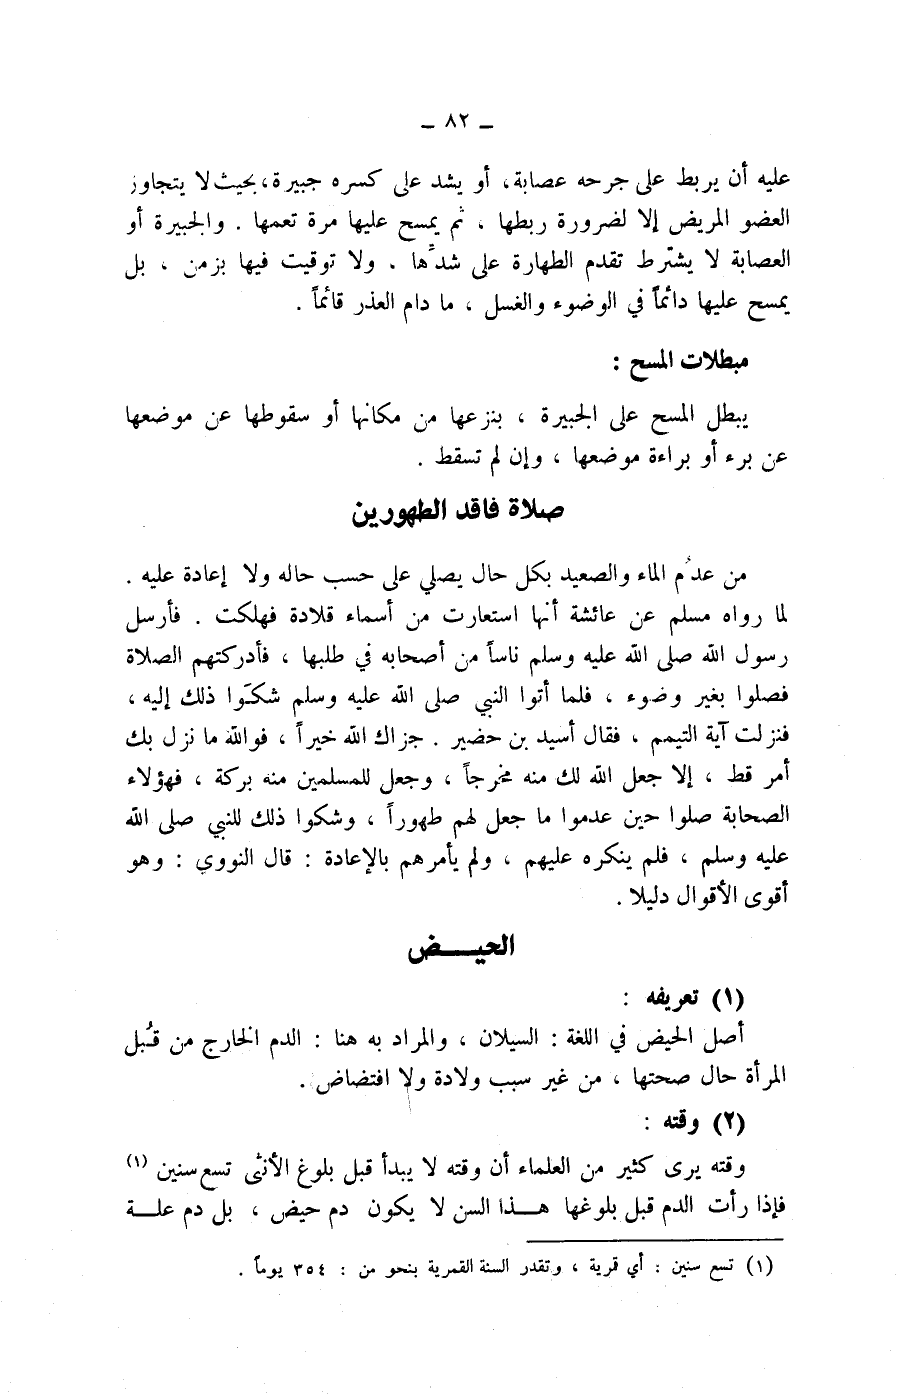 ـ ٨٢ ـ
عليه أن يربط على جرحه عصابة، أو يشد على كسره جبيرة، بحيث لا يتجاوز
العضو المريض إلا لضرورة ربطها ، ثم يمسح عليها مرة تعمها . والجبيرة أو
العصابة لا يشترط تقدم الطهارة على شدّها . ولا توقيت فيها بزمن ، بل
يمسح عليها دائماً في الوضوء والغسل ، ما دام العذر قائماً .
مبطلات المسح :
يبطل المسح على الجبيرة ، بنزعها من مكانها أو سقوطها عن موضعها
عن برء أو براءة موضعها ، وإن لم تسقط .
صلاة فاقد الطهورين
من عدُم الماء والصعيد بكل حال يصلي على حسب حاله ولا إعادة عليه .
لما رواه مسلم عن عائشة أنها استعارت من أسماء قلادة فهلكت . فأرسل
رسول الله صلى الله عليه وسلم ناساً من أصحابه في طلبها ، فأدركتهم الصلاة
فصلوا بغير وضوء ، فلما أتوا النبي صلى الله عليه وسلم شكَوا ذلك إليه ،
فنزلت آية التيمم ، فقال أسيد بن حضير . جزاك الله خيراً ، فوالله ما نزل بك
أمر قط ، إلا جعل الله لك منه مخرجاً ، وجعل للمسلمين منه بركة ، فهؤلاء
الصحابة صلوا حين عدموا ما جعل لهم طهوراً ، وشكوا ذلك للنبي صلى الله
عليه وسلم ، فلم ينكره عليهم ، ولم يأمرهم بالإعادة : قال النووي : وهو
أقوى الأقوال دليلا .
الحيـــض
(١) تعريفه :
أصل الحيض في اللغة : السيلان ، والمراد به هنا : الدم الخارج من قُبل
المرأة حال صحتها ، من غير سبب ولادة ولا افتضاض .
(٢) وقته :
وقته يرى كثير من العلماء أن وقته لا يبدأ قبل بلوغ الأنثى تسع سنين (١)
فإذا رأت الدم قبل بلوغها هـــذا السن لا يكون دم حيض ، بل دم علـــة
(١) تسع سنين : أي قرية ، وتقدر السنة القمرية بنحو من : ٣٥٤ يوماً .